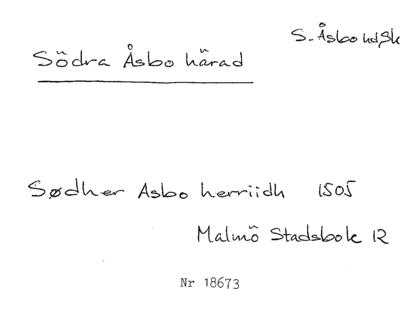 S. Åsbo hd, Sk
Södra Åsbo härad
Sødher Asbo herriidh 1505
Malmö Stadsbok 12
Nr 18673